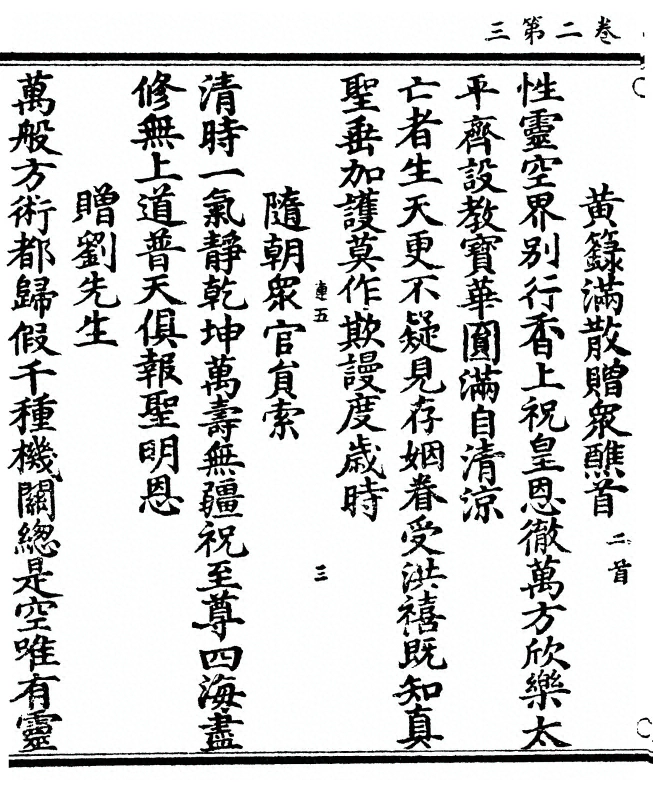 卷二第三
黄籙滿散贈衆醮首 二首
性靈空界别行香上祝皇恩徹萬方欣樂太
平齊設教寳華圎滿自清涼
亡者生天更不疑見存姻眷受洪禧既知真
聖垂加護莫作欺謾度歳時
連五 三
隨朝衆官貟索
清時一氣靜乾坤萬壽無疆祝至尊四海盡
修無上道普天俱報聖明恩
贈劉先生
萬般方術都歸假千種機關總是空唯有靈